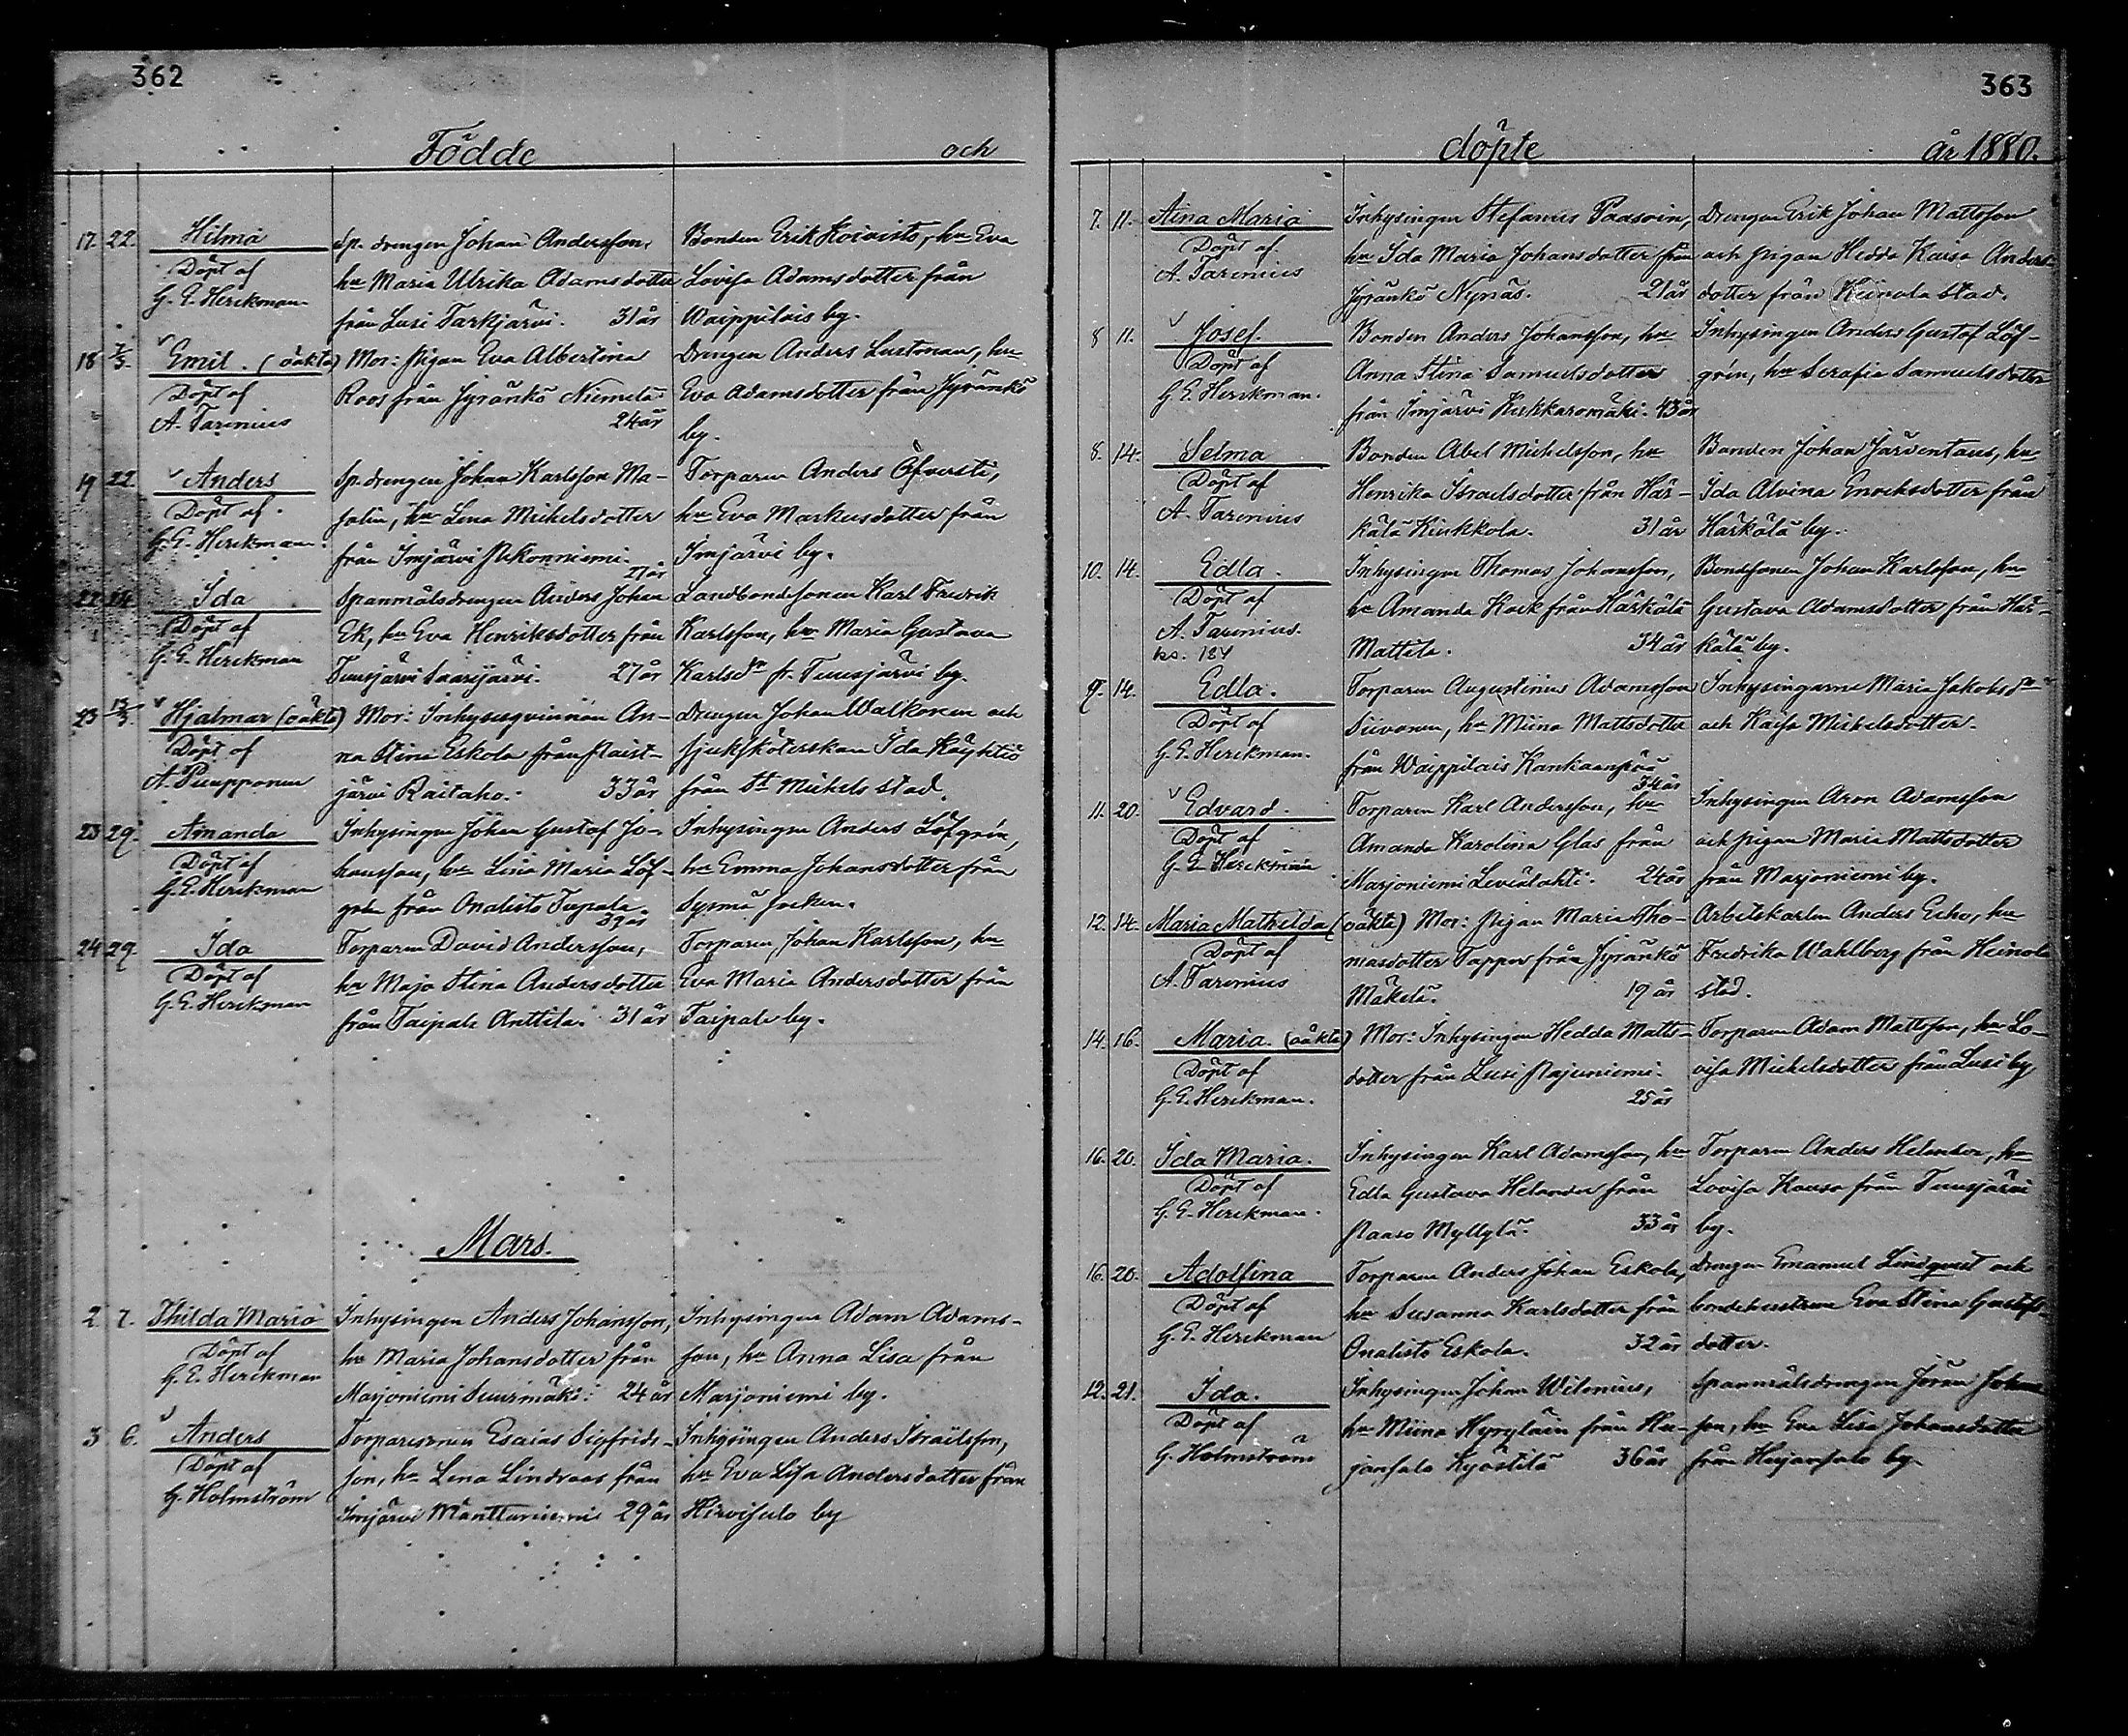 362
Födde och
17. 22. Hilma Sp. drengen Johan Andersson, Bonden Erik Koivisto, hu Eva
Döpt af hu Maria Ulrika Adamsdotter Lovisa Adamsdotter från
G. E. Herckman från Lusi Tarkjärvi. 31 år Waippilais by.
18 7/3. Emil. (oäkta) Mor: pigan Eva Albertina Drengen Anders Lustman, hu
Döpt af Roos från Jyränkö Niemelä. Eva Adamsdotter från Jyränkö
A. Tarenius 24 år by.
19 22 Anders Sp. drengen Johan Karlsson Ma- Torparen Anders Öfversti,
Döpt af. salin, hu Lena Mickelsdotter hu Eva Markusdotter från
G. E. Herckman. från Imjärvi Pukonniemi. 27 år Imjärvi by.
22 24 Ida Spanmålsdrengen Anders Johan Landbondesonen Karl Fredrik
Döpt af Ek, hu Eva Henriksdotter från Karlsson, hu Maria Gustava
G. E. Herckman Tuusjärvi Saarijärvi. 27 år Karlsdr fr. Tuusjärvi by.
23 13/3. Hjalmar (oäkta) Mor: Inhysesqvinnan An- Drengen Johan Walkonen och
Döpt af na Stina Eskola från Paist- sjuksköterskan Ida Käyhkiö
A. Pumpponen järvi Raitaho. 33 år från St Mickels stad.
23 29. Amanda Inhysingen Johan Gustaf Jo- Inhysingen Anders Löfgrén,
Döpt af hansson, hu Lina Maria Löf- hu Emma Johansdotter från
G. E. Herckman grén från Onalisto Tupala. 39 år Sysmä socken.
24 29. Ida Torparen David Andersson, Torparen Johan Karlsson, hu
Döpt af hu Maja Stina Andersdotter Eva Maria Andersdotter från
G. E. Herckman från Taipale Anttila. 31 år Taipale by.
Mars.
2. 7. Thilda Maria Inhysingen Anders Johansson, Inhysingen Adam Adams-
Döpt af hu Maria Johansdotter från son, hu Anna Lisa från
G. E. Herckman Marjoniemi Suurmäki. 24 år Marjoniemi by.
3 6. Anders Torparesonen Esaias Sigfrids- Inhysingen Anders Israelsson,
Döpt af son, hu Lena Lindroos från hu Eva Lisa Andersdotter från
G. Holmström Imjärvi Mänttäniemi 29 år Hirvisalo by
363
döpte år 1880.
7. 11. Aina Maria Inhysingen Stefanus Paasoin, Drengen Erik Johan Mattsson
Döpt af hu Ida Maria Johansdotter från och pigan Hedda Kaisa Anders-
A. Tarenius Jyränkö Nynäs. 21 år dotter från Heinola stad.
8 11. Josef. Bonden Anders Johansson, hu Inhysingen Anders Gustaf Löf-
Döpt af Anna Stina Samuelsdotter grén, hu Serafia Samuelsdotter
G. E. Herckman. från Imjärvi Kukkaromäki. 43 år
8. 14. Selma Bonden Abel Mickelsson, hu Bonden Johan Järventaus, hu
Döpt af Henrika Israelsdotter från Här- Ida Alvina Enocksdotter från
A. Tarenius kälä Kiukkola. 31 år Härkälä by.
10. 14. Edla. Inhysingen Thomas Johansson, Bondsonen Johan Karlsson, hu
Döpt af hu Amanda Kock från Härkälä Gustava Adamsdotter från Här-
A. Tarenius. Mattila. 34 år kälä by.
ks. 184
9. 14. Edla. Torparen Augustinus Adamsson Inhysingarne Maria Jakobsdr
Döpt af Siivonen, hu Miina Mattsdotter och Kaisa Mickelsdotter.
G. E. Herckman. från Waippilais Kankaanpää 34 år
11. 20. Edvard. Torparen Karl Andersson, hu Inhysingen Aron Adamsson
Döpt af Amanda Karolina Glas från och pigan Maria Mattsdotter
G. E. Herckman Marjoniemi Leviälahti. 24 år från Marjoniemi by.
12. 14. Maria Mathilda (oäkta) Mor: Pigan Maria Tho- Arbetskarlen Anders Echo, hu
Döpt af masdotter Tapper från Jyränkö Fredrika Wahlberg från Heinola
A. Tarenius Mäkelä. 19 år stad.
14. 16. Maria. (oäkta) Mor: Inhysingen Hedda Matts- Torparen Adam Mattsson, hu Lo-
Döpt af dotter från Lusi Pajuniemi. visa Mickelsdotter från Lusi by
G. E. Herckman. 25 år
16. 20. Ida Maria. Inhysingen Karl Adamsson, hu Torparen Anders Helander, hu
Döpt af Edla Gustava Helander från Lovisa Kausa från Tuusjärvi
G. E. Herckman. Paaso Myllylä. 33 år by.
16. 20. Adolfina Torparen Anders Johan Eskola, Drengen Emanuel Lindqvist och
Döpt af hu Susanna Karlsdotter från bondehustrun Eva Stina Gustafs-
G. E. Herckman Onalisto Eskola. 32 år dotter.
12. 21. Ida. Inhysingen Johan Wilenius, Spanmålsdrengen Jöran Johans-
Döpt af hu Miina Hyryläin från Hu- son, hu Eva Lisa Johansdotter
G. Holmström jansalo Kyöstilä 36 år från Hujansalo by.